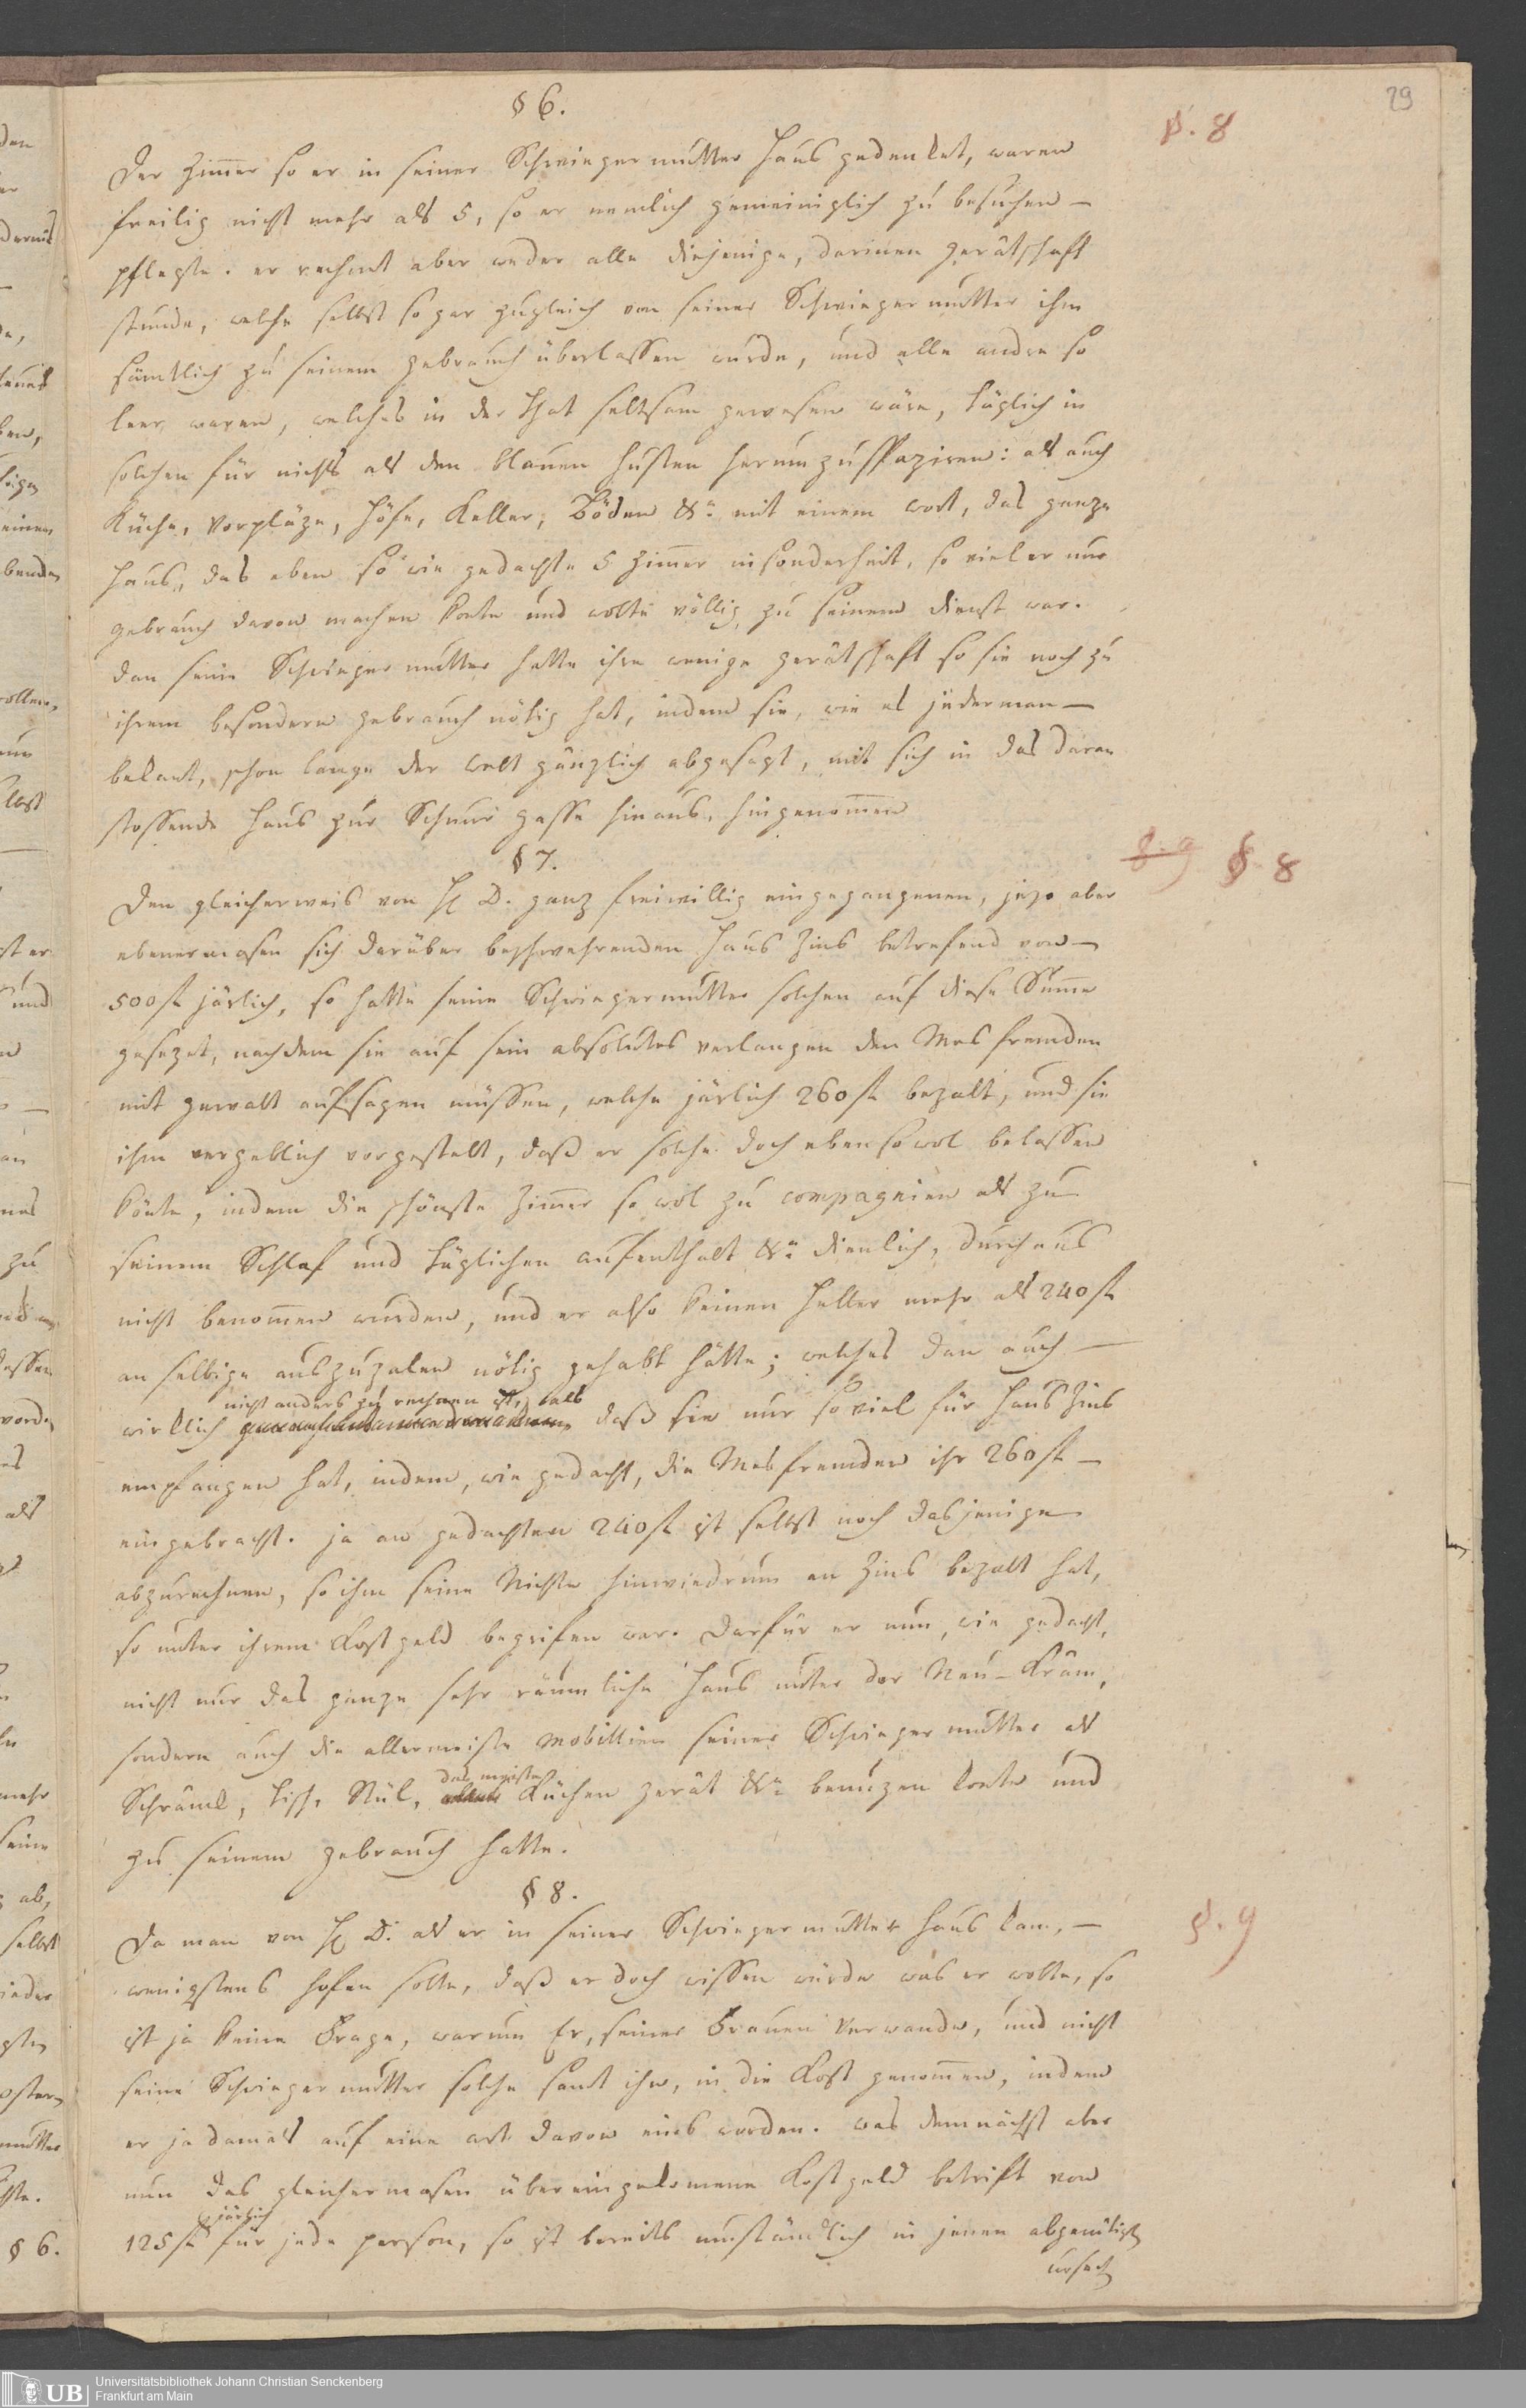 29
§ 6.
§. 8
Der Zimmer so er in seiner Schwiegermutter Haus gedenket, waren
freilig nicht mehr als 5, so er nemlich gemeiniglich zu besuchen —
pflegte. er rechnet aber weder alle diejenige, darinnen gerätschaft
stunde, welche selbst so gar zugleich von seiner Schwiegermutter ihm
sämtlich zu seinem gebrauch überlassen wurde, und alle andre so
leer waren, welches in der That seltsam gewesen wäre, täglich in
solchen für nichts als den blauen husten herumzuspaziren: als auch
Küche, Vorpläze, Höfe, Keller, Böden &c. mit einem wort, das ganze
Haus, das eben so wie gedachte 5 Zimmer insonderheit, so viel er nur
gebrauch davon machen konte und wolte völlig zu seinem dienst war.
dan seine Schwiegermutter hatte ihre wenige gerätschaft so sie noch zu
ihrem besondern gebrauch nötig hat, indem sie, wie es jederman —
bekant, schon lange der Welt gänzlich abgesagt, mit sich in das daran
stossende Haus zur Schnur gasse hinaus, hingenommen
§ 7.
§. 9 § 8
Den gleicherweis von H. D. ganz freiwillig eingegangenen, jezo aber
ebenermasen sich darüber beschwehrenden Haus Zins betrefend von —
500 fl järlich, so hatte seine Schwiegermutter solchen auf diese Summe
gesezet, nachdem sie auf sein absolutes verlangen den Mesfremden
mit gewalt aufsagen müssen, welche järlich 260 fl bezalt, und sie
ihm vergeblich vorgestelt, daß er solche doch ebensowol belassen
könte, indem die schönste Zimmer so wol zu compagnien als zu
seinem Schlaf und täglichen aufenthalt &c. dienlich, durchaus
nicht benommen wurden, und er also keinen Heller mehr als 240 fl
an selbige auszuzalen nötig gehabt hätte; welches dan auch —
nicht anders zu rechnen ist, als
wirklich daß sie nur so viel für Haus Zins
empfangen hat, indem, wie gedacht, die Mesfremden ihr 260 fl —
eingebracht. ja an gedachten 240 fl ist selbst noch dasjenige
abzurechnen, so ihm seine Nichte hinwiedrum an Zins bezalt hat,
so unter ihrem Kostgeld begrifen war. Darfür er nun, wie gedacht,
nicht nur das ganze sehr räumliche Haus unter der Neu-Kräm,
sondern auch die allermeiste Mobillien seiner Schwiegermutter als
das meiste
Schränk, Tisch, Stül, Küchen gerät &c. benuzen konte und
zu seinem gebrauch hatte.
§ 8.
§. 9
Da man von H. D. als er in seiner Schwiegermutter Haus kam, —
wenigstens hofen solte, daß er doch wissen würde was er wolte, so
ist ja keine Frage, warum Er, seiner Frauen Verwande, und nicht
seine Schwiegermutter solche samt ihm, in die Kost genommen, indem
er ja damals auf eine art davon eins worden. was demnächst aber
nun das gleichermasen übereingekomene Kostgeld betrift von
järlich
125 fl für jede person, so ist bereits umständlich in jenen abgenötigten
ursach
§ 6.
Universitätsbibliothek Johann Christian Senckenberg
Frankfurt am Main
UB